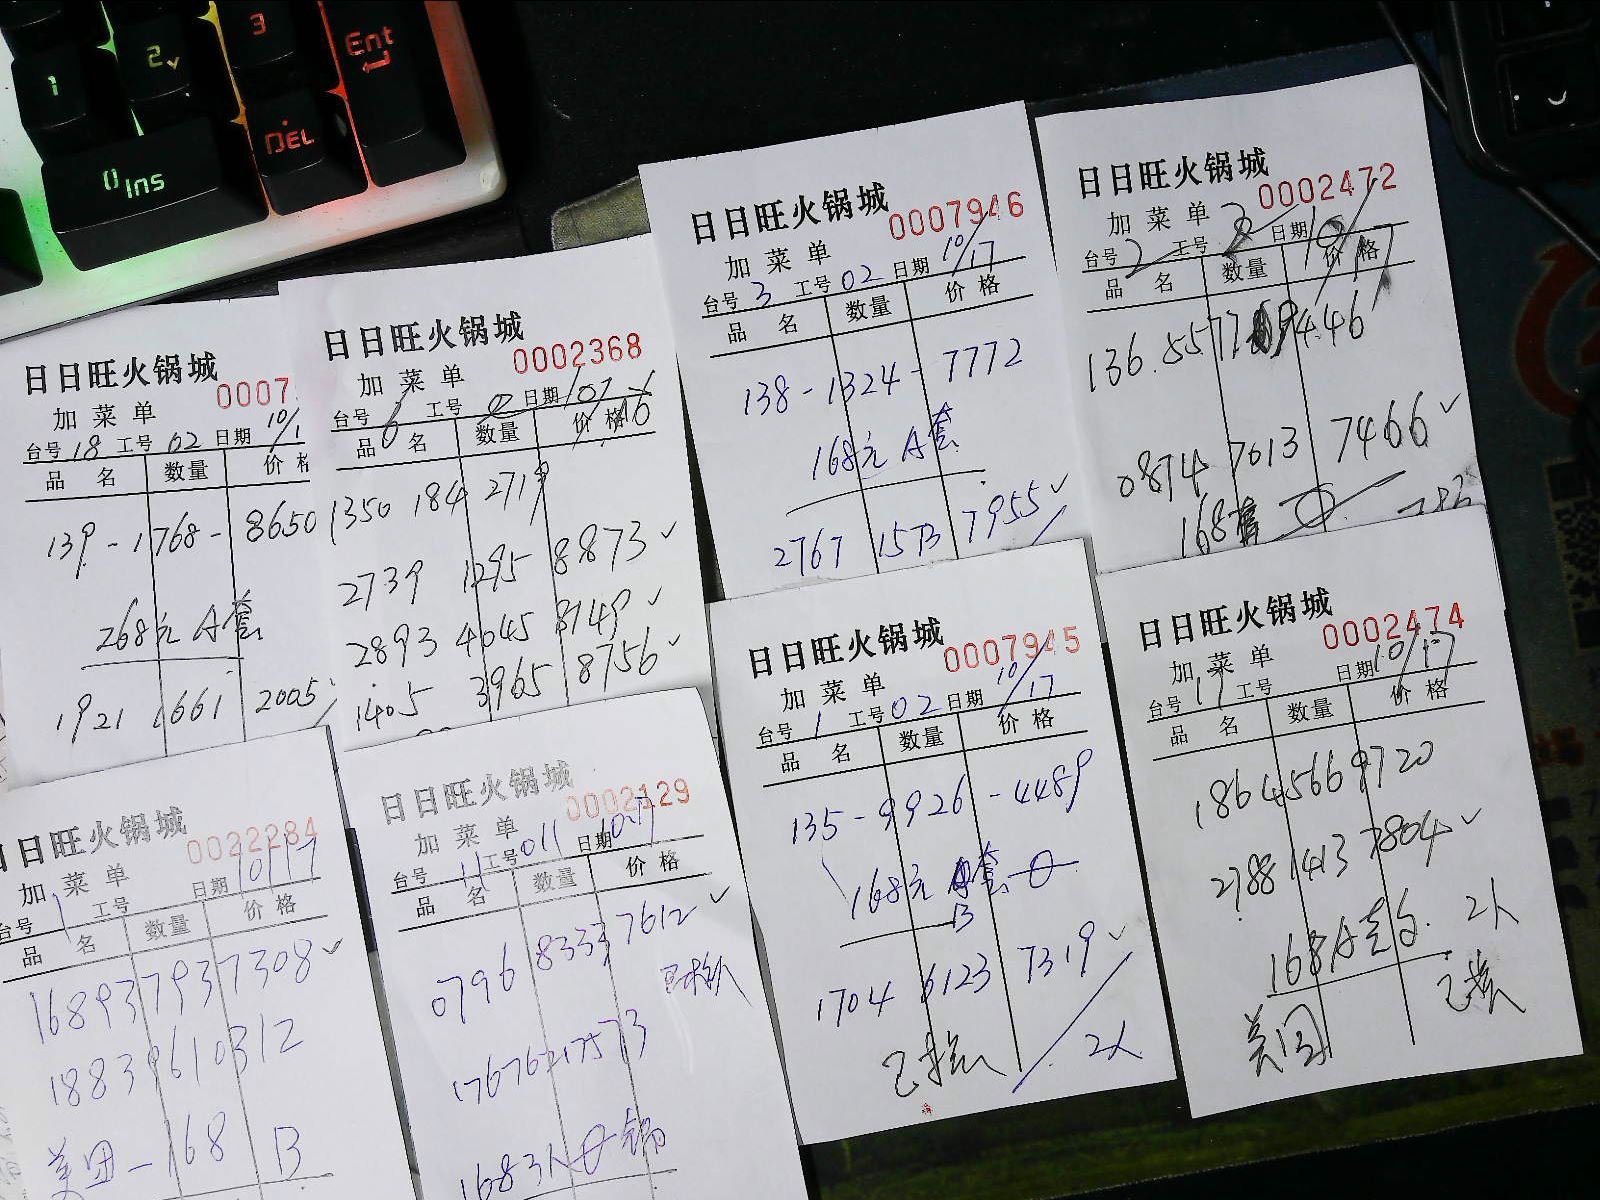 1
2
3
Ent
0 Ins
DEL
日日旺火锅城
0007
加菜单
台号 18 工号 02 日期 10/1
品名 数量 价格
139-1768-8650
268元 A套
1921 1661 2005
日日旺火锅城
0002368
加菜单
台号 6 工号 日期
品名 数量 价格
1350 184 2719
2739 1295 8873 ✓
2893 4045 8149 ✓
1405 3965 8756 ✓
日日旺火锅城
0007946
加菜单
台号 3 工号 02 日期 10/17
品名 数量 价格
138-1324-7772
168元 A套
2767 1573 7955 ✓
日日旺火锅城
0002472
加菜单
台号 2 工号 日期 10/17
品名 数量 价格
136 5577 9446
0874 7613 7466 ✓
168套
日日旺火锅城
0022284
加菜单
台号 1 工号 日期 1017
品名 数量 价格
168937937308 ✓
18839610312
美团-168 B
日日旺火锅城
0002129
加菜单
台号 11 工号 011 日期 10.17
品名 数量 价格
0796 8333 7612 ✓
已核
17676217573
1683人 锅
日日旺火锅城
0007945
加菜单
台号 1 工号 02 日期 10/17
品名 数量 价格
135-9926-4489
168元 套
B
1704 6123 7319 ✓
已核 2人
日日旺火锅城
0002474
加菜单
台号 17 工号 日期 10/17
品名 数量 价格
18645669720
2788 1413 7804 ✓
168A 2人
美团 已核